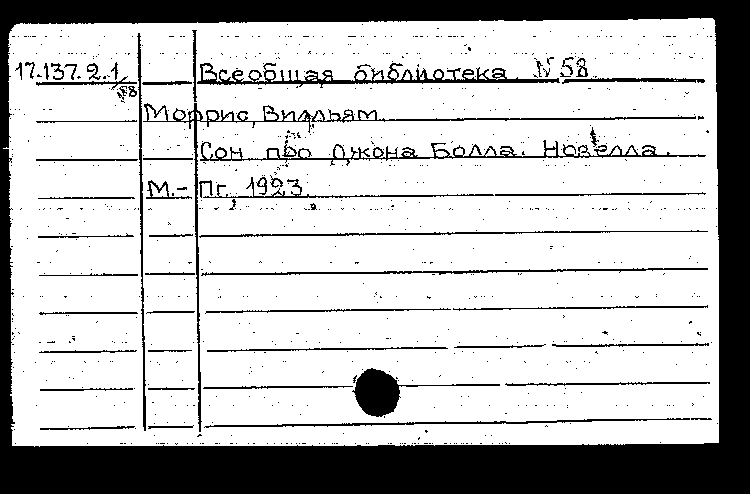 17.137.2.1 Всеобщая библиотека N 58
58
Моррис, Вилльям
Сон про Джона Болла. Новелла.
М.-Пг., 1923.